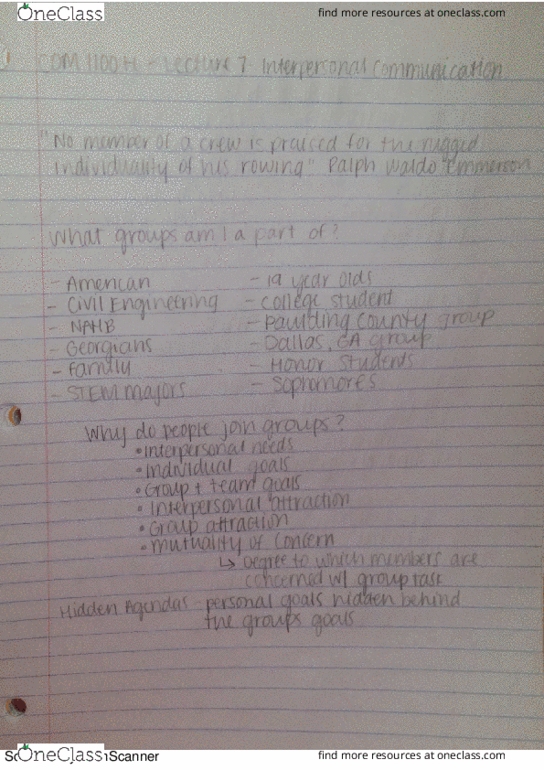 OneClass
find more resources at oneclass.com
COM 1100H - Lecture 7 Interpersonal Communication
"No member of a crew is praised for the rugged
individuality of his rowing" Ralph Waldo Emmerson
What groups am I a part of?
- American - 19 year olds
- Civil Engineering - College student
- NAHB - Paulding County group
- Georgians - Dallas, GA group
- Family - Honor Students
- STEM majors - Sophomores
Why do people join groups?
• Interpersonal needs
• Individual goals
• Group + team goals
• Interpersonal attraction
• Group attraction
• Mutuality of Concern
↳ degree to which members are
concerned w/ group task
Hidden Agendas - personal goals hidden behind
the groups goals
OneClass
Scanner
find more resources at oneclass.com